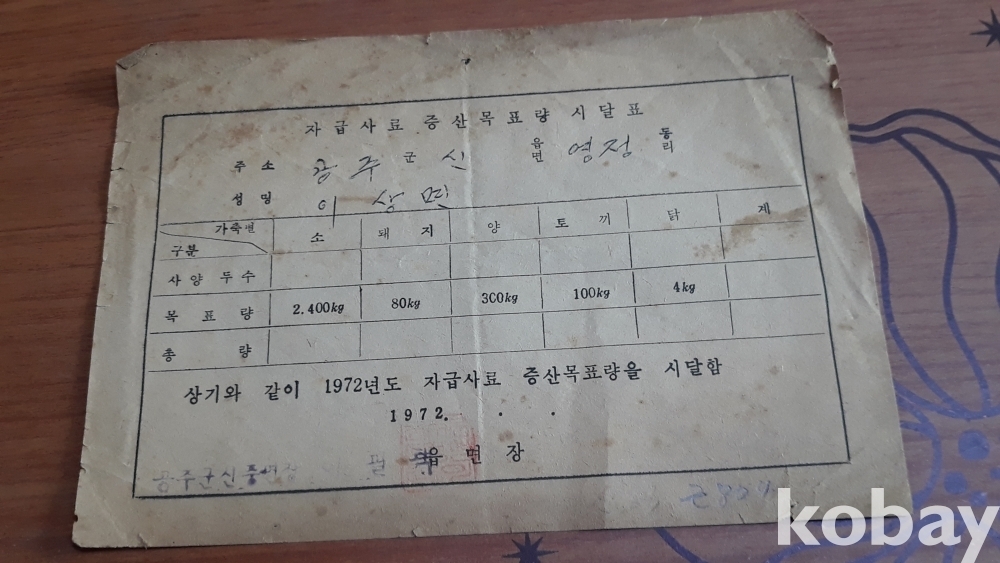 자급사료 증산목표량 시달표
주소 공주 군 신 읍면 영정 동리
성명 이상면
가축별 구분 소 돼지 양 토끼 닭 계
사양두수
목표량 2.400kg 80kg 300kg 100kg 4kg
총량
상기와 같이 1972년도 자급사료 증산목표량을 시달함
1972. . .
공주군신풍면장 읍면장
kobay